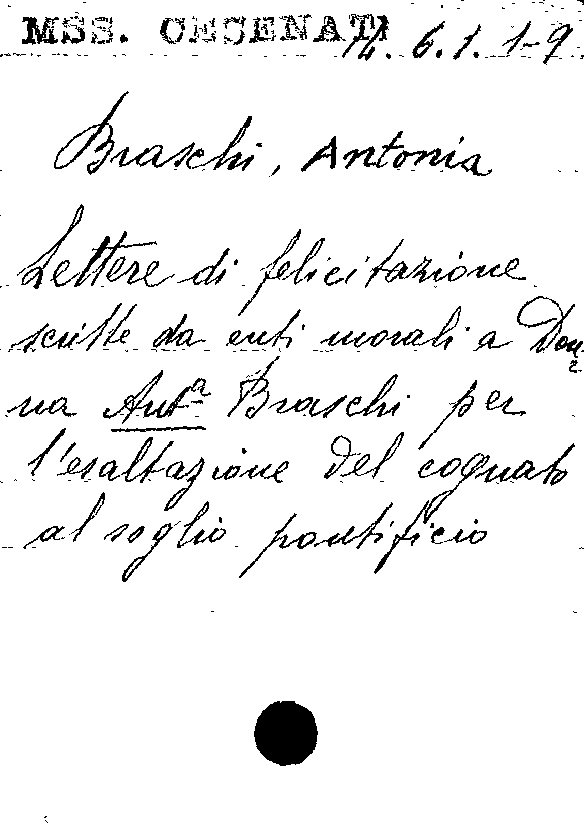 MSS. CESENATI 14. 6. 1. 1-9
Braschi, Antonia
Lettere di felicitazione
scritte da enti morali a Don=
na Ant.ª Braschi per
l'esaltazione del cognato
al soglio pontificio